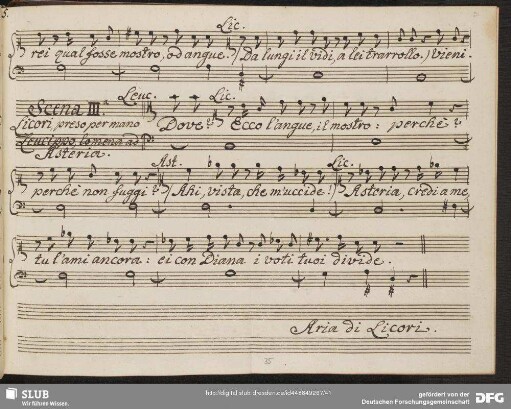 Lic.
rei qual fosse mostro, od angue.) Da lungi il vidi, a lei trarrollo.) vieni.
Scena III.ª Leuc. Lic.
Licori, preso per mano Dove? Ecco l'angue, il mostro: perchè?
Leucippo, lo mena ad
Asteria.
Ast. Lic.
perchè non fuggi? (Ahi, vista, che m'uccide!) Asteria, credi a me,
tu l'ami ancora: ei con Diana i voti tuoi divide.
Aria di Licori.
SLUB
Wir führen Wissen.
gefördert von der
Deutschen Forschungsgemeinschaft
DFG